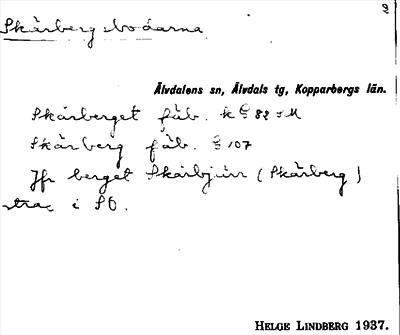 2
Skärbergsbodarna
Älvdalens sn, Älvdals tg, Kopparbergs län.
Skärberget fäb. k 82 SM
Skärberg fäb. 107
Jfr berget (Skärberg)
strax i SO.
HELGE LINDBERG 1937.